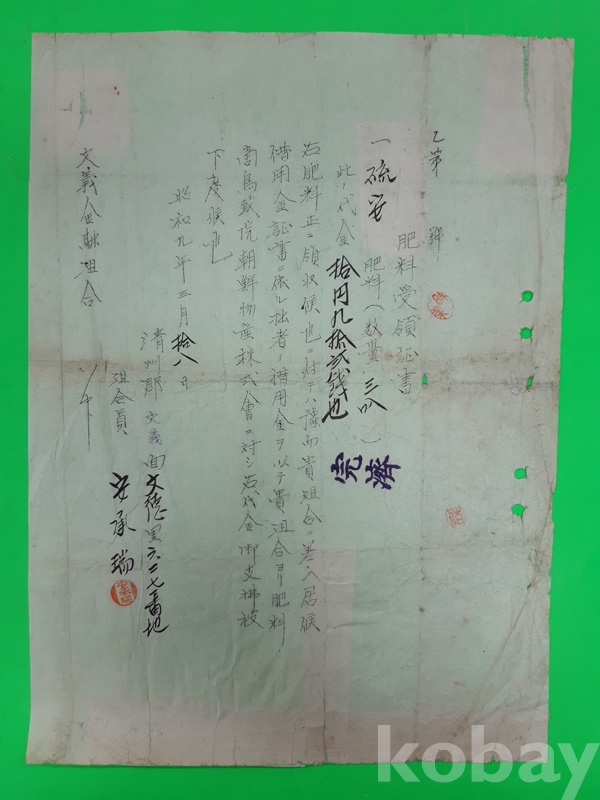 乙第 號
肥料受領証書
一硫安 肥料(数量 三叺 )
此ノ代金 拾円九拾弐銭也
完濟
右肥料正ニ領収候也ニ付テハ豫而貴組合ニ差入居候
借用金証書ニ依ル拙者ノ借用金ヲ以テ貴組合ヨリ肥料
鳥致院朝鮮物産株式會ニ対シ右代金御支拂被
下度候也
昭和九年三月拾八日
清州郡文義面文德里六二七番地
組合員 安承瑞
文義金融組合
kobay